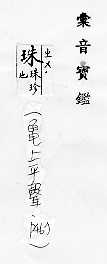 彙音寶鑑
ㄓㄨ
珠 珠珍也
(龜上平聲,